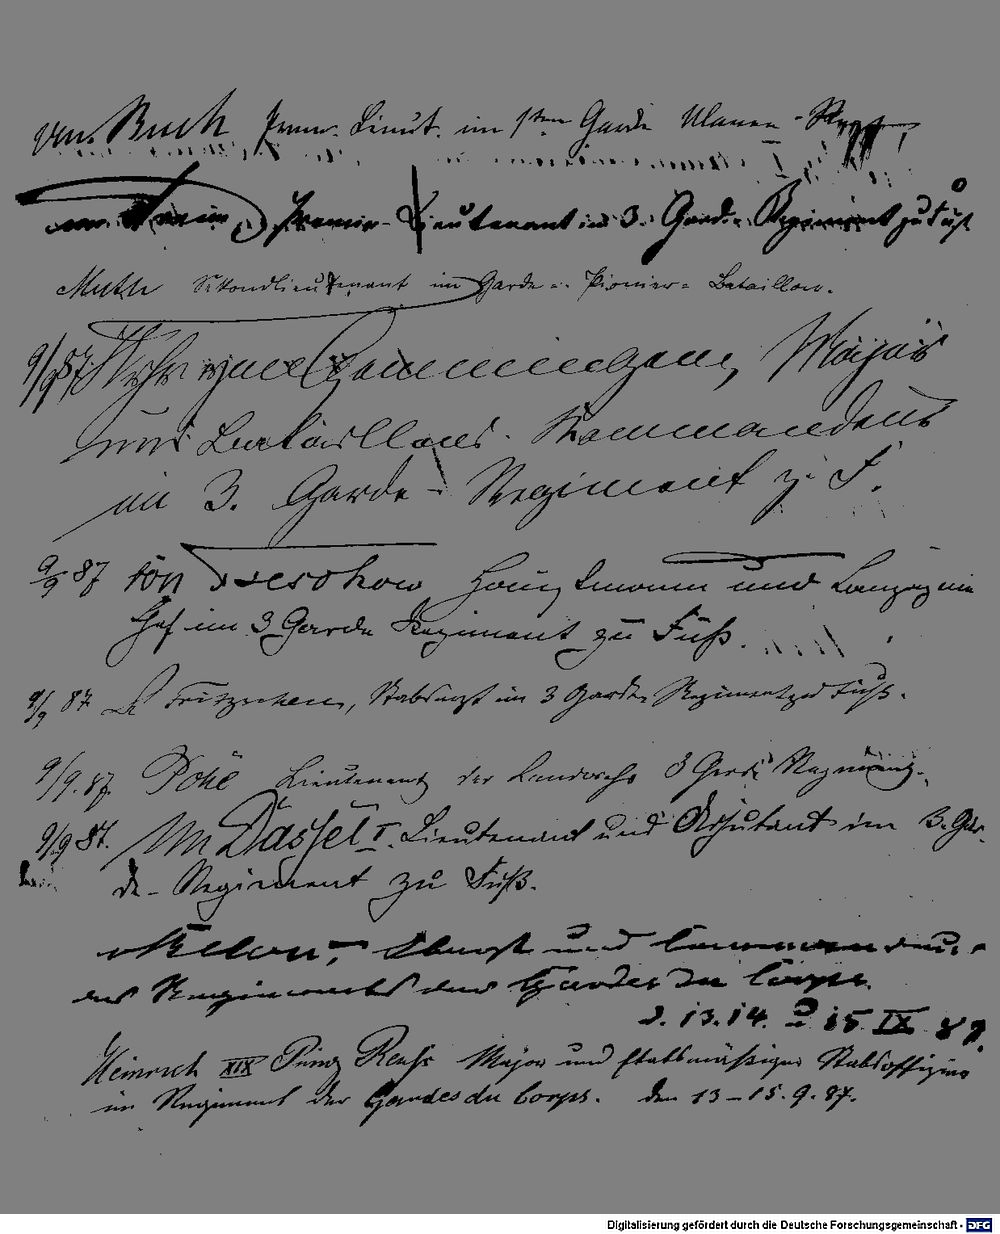 von Buch Prem. Lieut. im 1sten Garde Ulanen-Regt.
Premier-Lieutenant im 3. Garde-Regiment zu Fuß
Muthe Sekondlieutenant im Garde-Pionier-Bataillon.
9/9 87 Gemmingen, Major
und Bataillons-Kommandeur
im 3. Garde-Regiment z. F.
9/9 87 von Tresckow Hauptmann und Compagnie
Chef im 3 Garde Regiment zu Fuß.
9/9 87 Stabsarzt im 3 Garde Regiment zu Fuß.
9/9. 87. Lieutenant der Landwehr 3 Garde Regiment.
9/9 87. von Dassel I. Lieutenant und Adjutant im 3. Gar-
de-Regiment zu Fuß.
Oberst und Commandeur
des Regiments der Gardes du Corps.
d. 13. 14. u 15 IX 87.
Heinrich XIX Prinz Reuß Major und etatsmäßiger Stabsoffizier
im Regiment der Gardes du Corps. den 13-15. 9. 87.
Digitalisierung gefördert durch die Deutsche Forschungsgemeinschaft - DFG